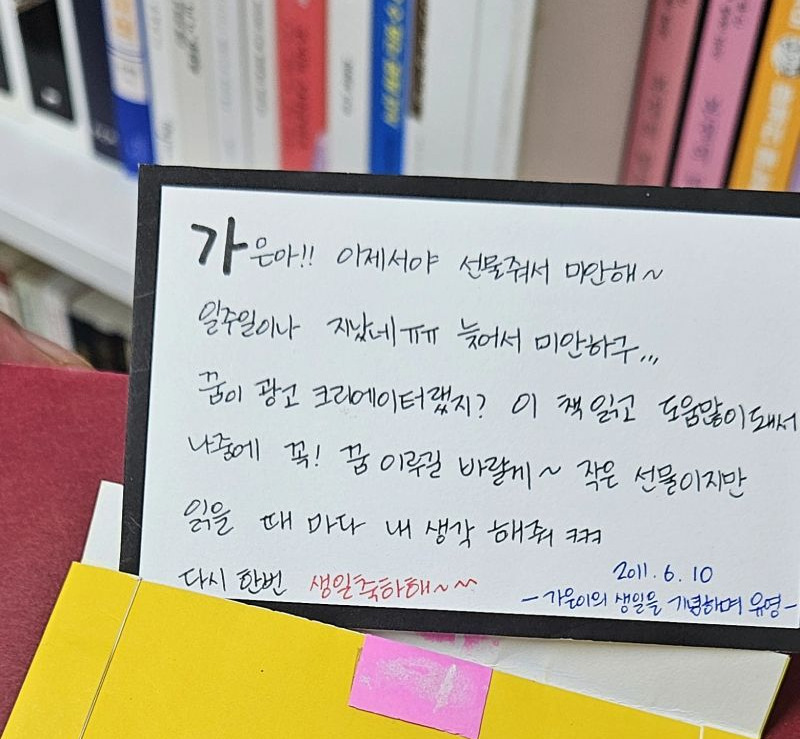 가은아!! 이제서야 선물줘서 미안해~
일주일이나 지났네ㅠㅠ 늦어서 미안하구,,,
꿈이 광고 크리에이터랬지? 이 책 읽고 도움많이돼서
나중에 꼭! 꿈 이루길 바랄게~ 작은 선물이지만
읽을 때 마다 내 생각 해줘 ㅋㅋㅋ
다시 한번 생일축하해~^^
2011. 6. 10
- 가은이의 생일을 기념하며 유영 -